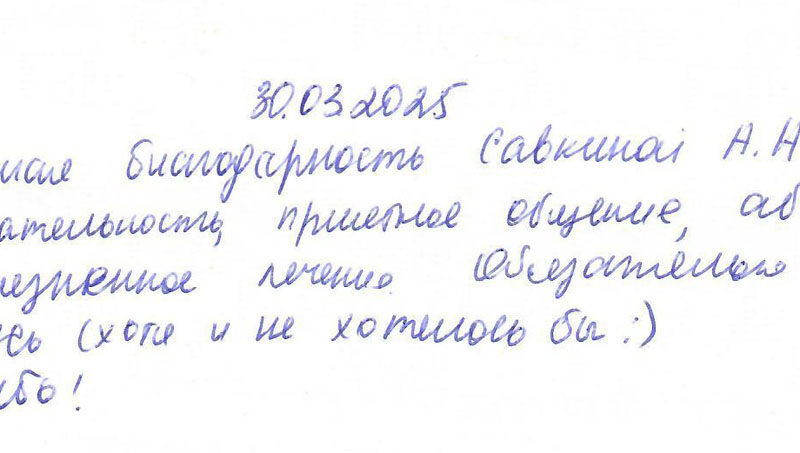 30.03.2025
мая благодарность Савкиной А.Н
ательность, приятное общение, аб
лезненное лечение. Обязательно
сь (хотя и не хотелось бы :)
ибо!